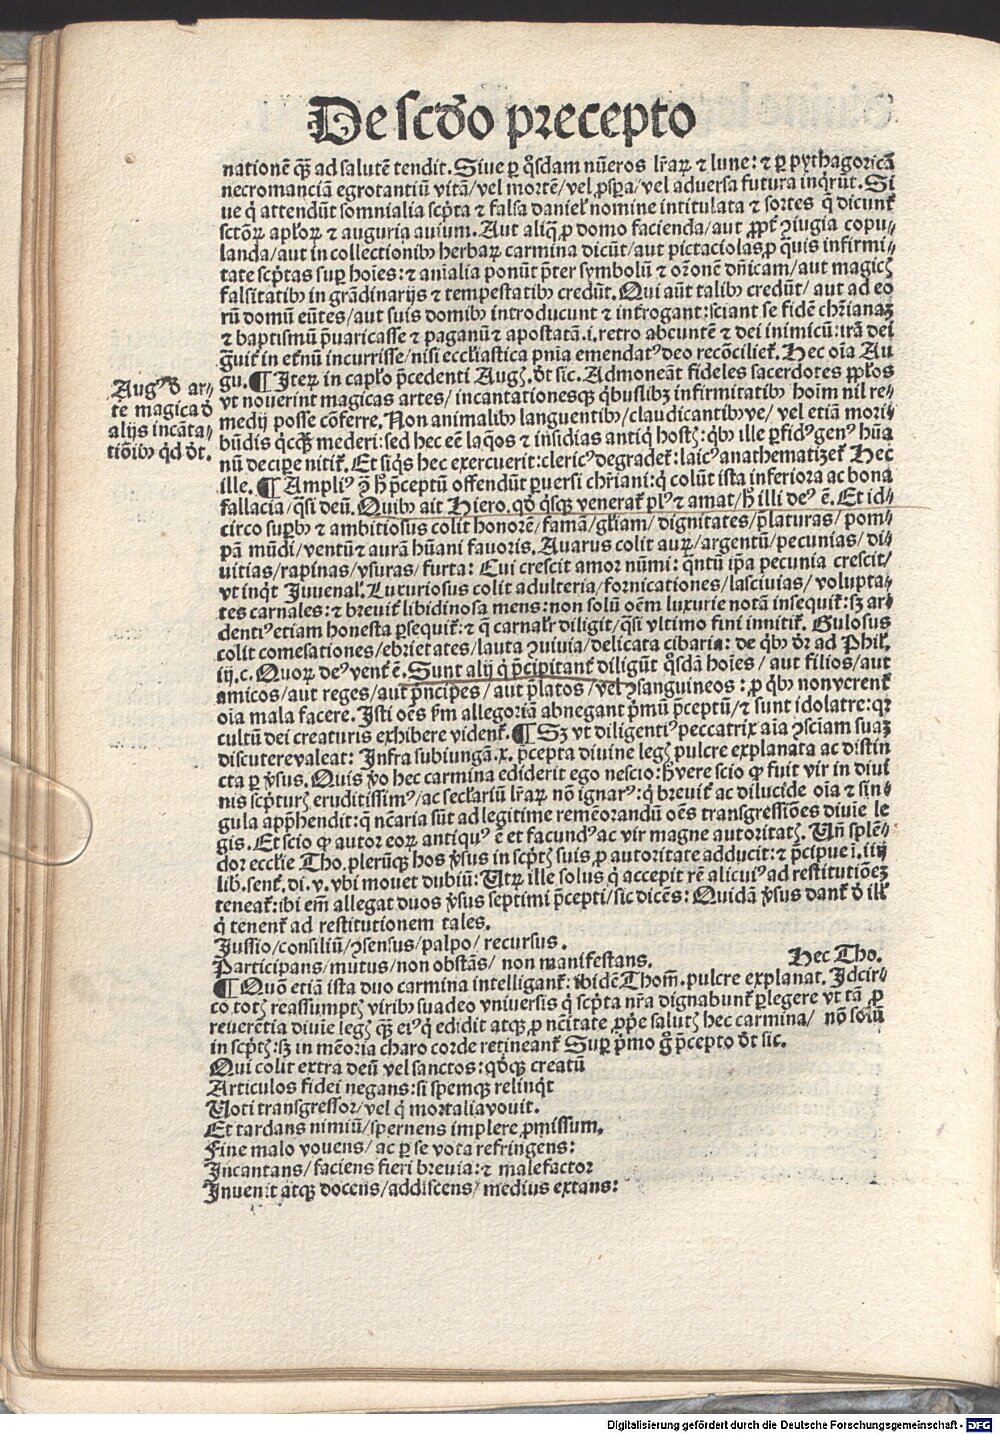 De scďo p̄recepto
natioñē q̄ȝ ad salutē tendit. Siue ꝑ q̄sdam nūeros lr̄aꝝ ⁊ lune: ⁊ ꝑ pythagoricā
necromanciā egrotantiū vitā/ vel mortē/ vel ꝓspa/ vel aduersa futura inq̇rūt. Si
ue q̇ attendūt somnialia scp̄ta ⁊ falsa danieł nomine intitulata ⁊ sortes q̄ dicunt̉
sctōꝝ apl̄oꝝ ⁊ auguria auium. Aut aliq̄ ꝓ domo facienda/ aut ꝓpt̉ ꝯiugia copu⸗
landa/ aut in collectionibꝰ herbaꝝ carmina dicūt/ aut pictaciolas ꝓ q̇uis infirmi⸗
tate scp̄tas suꝑ hoīes: ⁊ aīalia ponūt p̄ter symbolū ⁊ oꝛōnē dn̄icam/ aut magicꝭ
falsitatibꝰ in grādinarijs ⁊ tempestatibꝰ credūt. Qui aūt talibꝰ credūt/ aut ad eo
rū domū eūtes/ aut suis domibꝰ introducunt ⁊ int̉rogant: sciant se fidē chr̄ianaȝ
⁊ baptismū p̄uaricasse ⁊ paganū ⁊ apostatā .i. retro abeuntē ⁊ dei inimicū: irā dei
guit̉ in et̉nū incurrisse/ nisi eccl̄iastica pn̄ia emendatꝰ deo recōciliet̉. Hec oīa Au
gu. ¶ Iteꝝ in cap̄lo p̄cedenti Augꝭ. dt sic. Admoneāt fideles sacerdotes ppl̄os
vt nouerint magicas artes/ incantationesqȝ q̇buslibȝ infirmitatibꝰ hoīm nil re⸗
medij posse cōferre. Non animalibꝰ languentibꝰ/ claudicantibꝰve/ vel etiā mori⸗
būdis q̇cq̄ȝ mederi: sed hec eē laq̄os ⁊ insidias antiq̇ hostꝭ: q̇bꝰ ille ꝑfidꝰ genꝰ hūa
nū decipe nitit̉. Et siq̇s hec exercuerit: clericꝰ degradet̉: laicꝰ anathematizet̉ Hec
ille. ¶ Ampliꝰ ḡ h̄ p̄ceptū offendūt ꝑuersi chr̄iani: q̇ colūt ista inferiora ac bona
fallacia/ q̄si deū. Quibꝰ ait Hiero. qd̄ q̇sqȝ venerat̉ plꝰ ⁊ amat/ h̄ illi deꝰ ē. Et id⸗
circo suꝑbꝰ ⁊ ambitiosus colit honorē/ famā/ gl̄iam/ dignitates/ p̄laturas/ pom⸗
pā mūdi/ ventū ⁊ aurā hūani fauoris. Auarus colit auꝝ/ argentū/ pecunias/ di⸗
uitias/ rapinas/ vsuras/ furta: Cui crescit amor nūmi: q̄ntū ip̄a pecunia crescit/
vt inq̇t Juuenal̉. Luxuriosus colit adulteria/ fornicationes/ lasciuias/ volupta⸗
tes carnales: ⁊ breuit̉ libidinosa mens: non solū oēm luxurie notā insequit̉: sȝ ar⸗
dentiꝰ etiam honesta ꝑsequit̉: ⁊ q̄ carnalr̄ diligit/ q̄si vltimo fini innitit̉. Gulosus
colit comesationes/ ebrietates/ lauta ꝯuiuia/ delicata cibaria: de q̇bꝰ dr̄ ad Phil̉.
iij. c. Quoꝝ deꝰ vent̉ ē. Sunt alij q̇ p̄cipitant̉ diligūt q̄sdā hoīes/ aut filios/ aut
amicos/ aut reges/ aut p̄ncipes/ aut p̄latos/ vel ꝯsanguineos: ꝓ q̇bꝰ non vcrent̉
oīa mala facere. Isti oēs ẜm allegoriā abnegant p̄mū p̄ceptū/ ⁊ sunt idolatre: qꝛ
cultū dei creaturis exhibere vident̉. ¶ Sȝ vt diligentiꝰ peccatrix aīa ꝯsciam suaȝ
discutere valeat: Infra subiungā .x. p̄cepta diuine legꝭ pulcre explanata ac distin
cta ꝑ v̇sus. Quis v̇o hec carmina ediderit ego nescio: h̄ vere scio ꝙ fuit vir in diui
nis scp̄turꝭ eruditissimꝰ/ ac secl̄ariū lr̄aꝝ nō ignarꝰ: q̇ breuit̉ ac dilucide oīa ⁊ sin⸗
gula app̄hendit: q̄ nc̄aria sūt ad legitime remēorandū oēs transgressiōes diuīe le
gis. Et scio ꝙ autor eoꝝ antiquꝰ ē et facundꝰ ac vir magne autoritatꝭ. Un̄ splē⸗
dor eccl̄ie Tho. pleruqȝ hos v̇sus in scp̄tꝭ suis ꝓ autoritate adducit: ⁊ p̄cipue ī .iiij
lib. sent̉. di. v. vbi mouet dubiū: Utꝝ ille solus q̇ accepit rē alicuiꝰ ad restitutiōeȝ
teneat̉: ibi em̄ allegat duos v̇sus septimi p̄cepti/ sic dicēs: Quidā v̇sus dant̉ ď ill̉
q̇ tenent̉ ad restitutionem tales.
Jussio/ consiliū/ ꝯsensus/ palpo/ recursus.
Participans/ mutus/ non obstās/ non manifestans. Hec Tho.
¶ Quō etiā ista duo carmina intelligant̉: ibidē Thom̄. pulcre explanat. Idcir⸗
co totꝭ reassumptꝭ viribꝰ suadeo vniuersis q̇ scp̄ta nr̄a dignabunt̉ ꝑlegere vt tā ꝓ
reuerētia diuīe legꝭ q̄ȝ eiꝰ q̇ edidit atqȝ ꝓ nc̄itate ꝓpe salutꝭ hec carmina/ nō solū
in scp̄tꝭ: sȝ in mēoria charo corde retineant̉ Suꝑ p̄mo ḡ p̄cepto dt sic.
Qui colit extra deū vel sanctos: qd̄qȝ creatū
Articulos fidei negans: si spemqȝ relinq̇t
Uoti transgressor/ vel q̇ mortalia vouit.
Et tardans nimiū/ spernens implere ꝓmissum.
Fine malo vouens/ ac ꝑ se vota refringens:
Incantans/ faciens fieri breuia: ⁊ malefactor
Inuenit atqȝ docens/ addiscens/ medius extans:
Augꝰ ď ar⸗
te magica ď
alijs incāta⸗
tiōibꝰ qd dt.
Digitalisierung gefördert durch die Deutsche Forschungsgemeinschaft - DFG